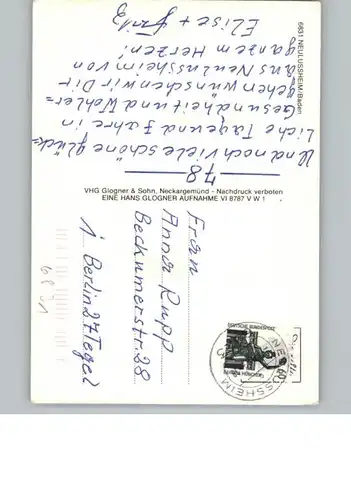 6831 NEULUSSHEIM/Baden
78
Und noch viele schöne glück=
liche Tage und Jahre in
Gesundheit und Wohler=
gehen wünschen wir Dir
aus Neulussheim von
ganzem Herzen!
Elise + Fritz
VHG Glogner & Sohn, Neckargemünd - Nachdruck verboten
EINE HANS GLOGNER AUFNAHME VI 8787 V W 1
Frau
Anna Rupp
Beckumerstr. 28
1 Berlin 27 Tegel
DEUTSCHE BUNDESPOST
60
NEULUSSHEIM
6831